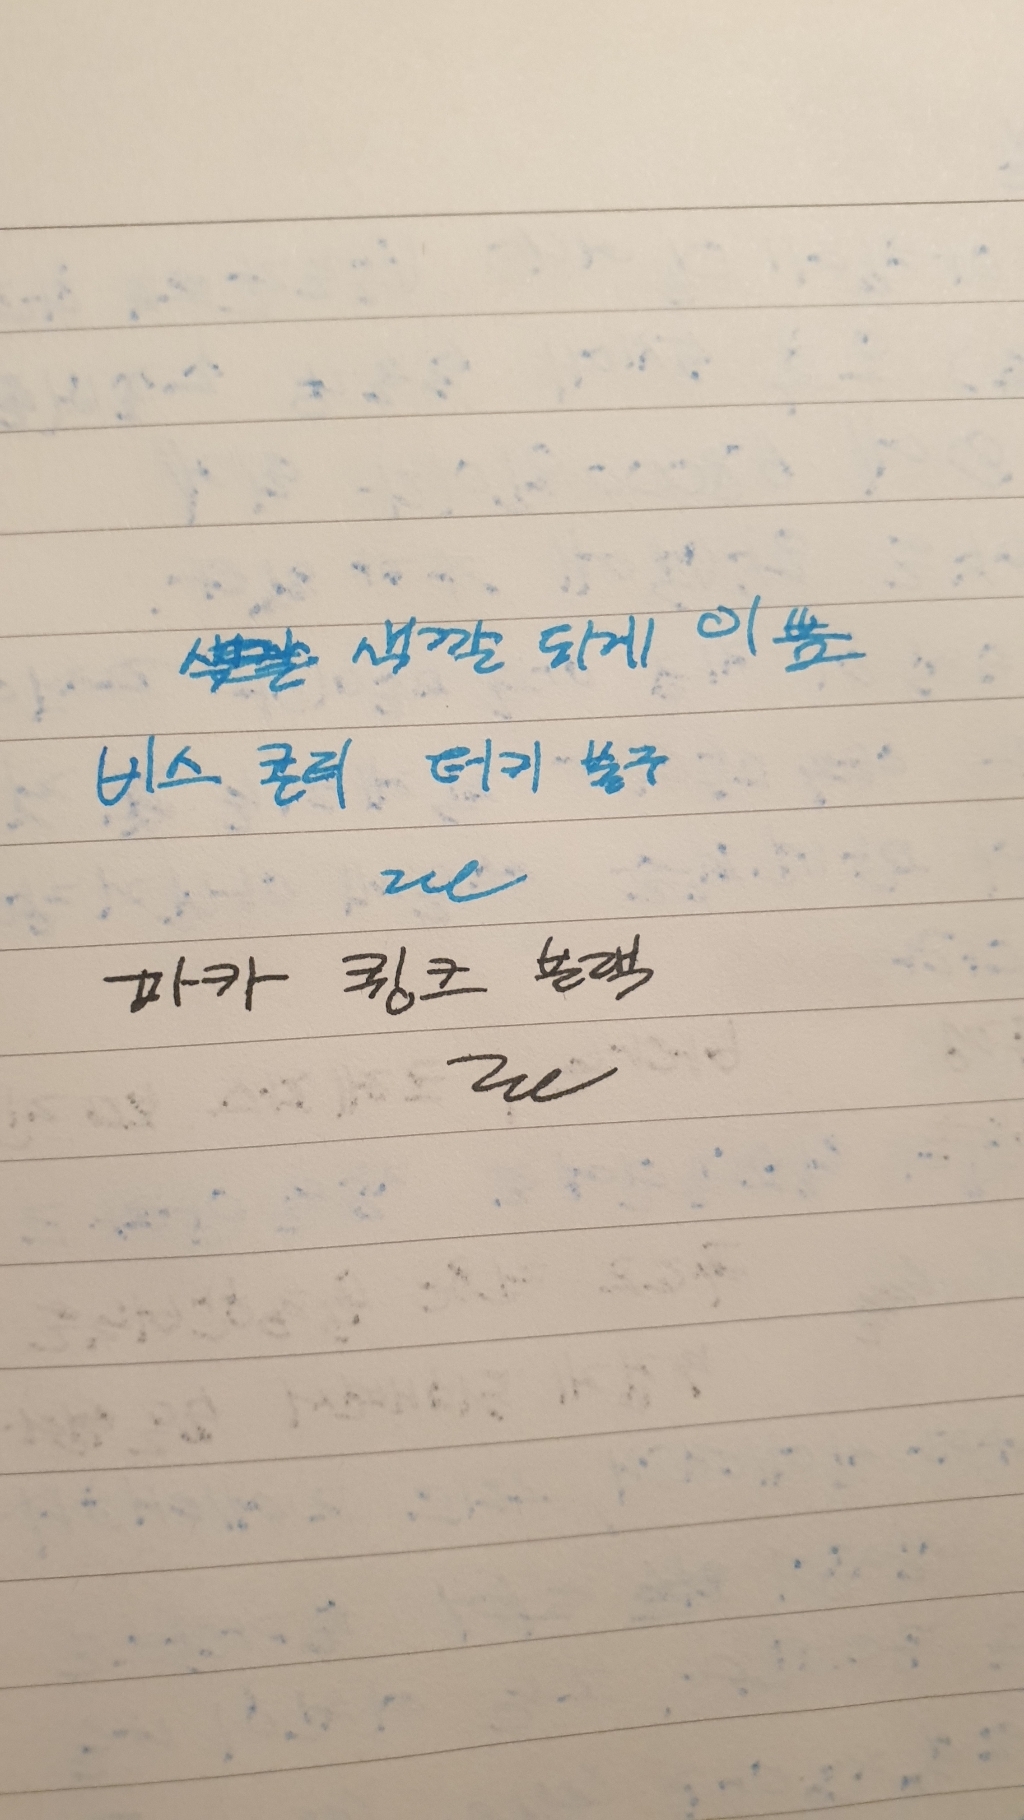 색깔 되게 이쁨
비스콘티 터키 블루
파카 큉크 블랙